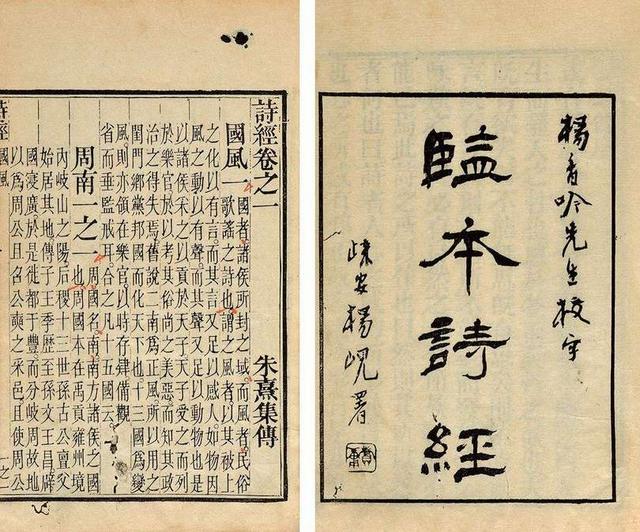 楊香吟先生校字
監本詩經
歸安楊峴署
詩經卷之一 朱熹集傳
國風一 國者諸侯所封之域而風者民俗
歌謠之詩也謂之風者以其被上
之化以有言而其言又足以感人如物因
風之動以有聲而其聲又足以動物也是
以諸侯采之以貢於天子天子受之而列
於樂官於以考其俗尚之美惡而知其政
治之得失焉舊說二南為正風所以用之
閨門鄉黨邦國而化天下也十三國為變
風則亦領在樂官以時存肄備觀
省而垂監戒耳合之凡十五國云
周南一之一 周國名南南方諸侯之國
也周國本在禹貢雍州境
內岐山之陽后稷十三世孫古公亶父
始居其地傳子王季歷至孫文王昌辟
國寖廣於是徙都于豐而分岐周故地
以為周公旦召公奭之采邑且使周公
詩經 國風